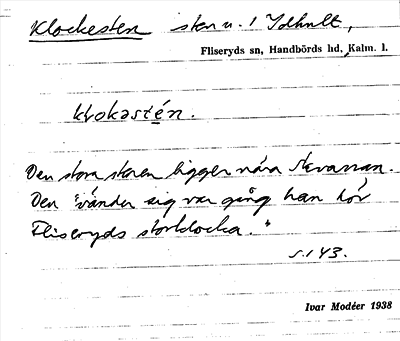 Klockesten sten u. 1 Idhult,
Fliseryds sn, Handbörds hd, Kalm. l.
klokəstén.
Den stora stenen ligger nära stranden.
Den "vänder sig var gång han hör
Fliseryds storklocka."
s. 143.
Ivar Modéer 1938